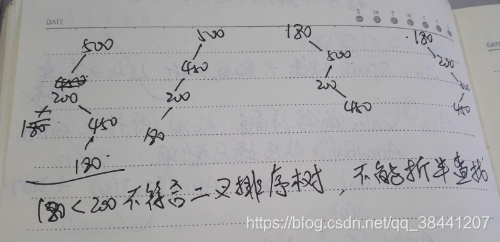 DATE
S M T W T F S
500 500 180 180
450 500 200
200 200 200
180 450 180 450 450
180
180<200 不符合二叉排序树，不能折半查找
https://blog.csdn.net/qq_38441207